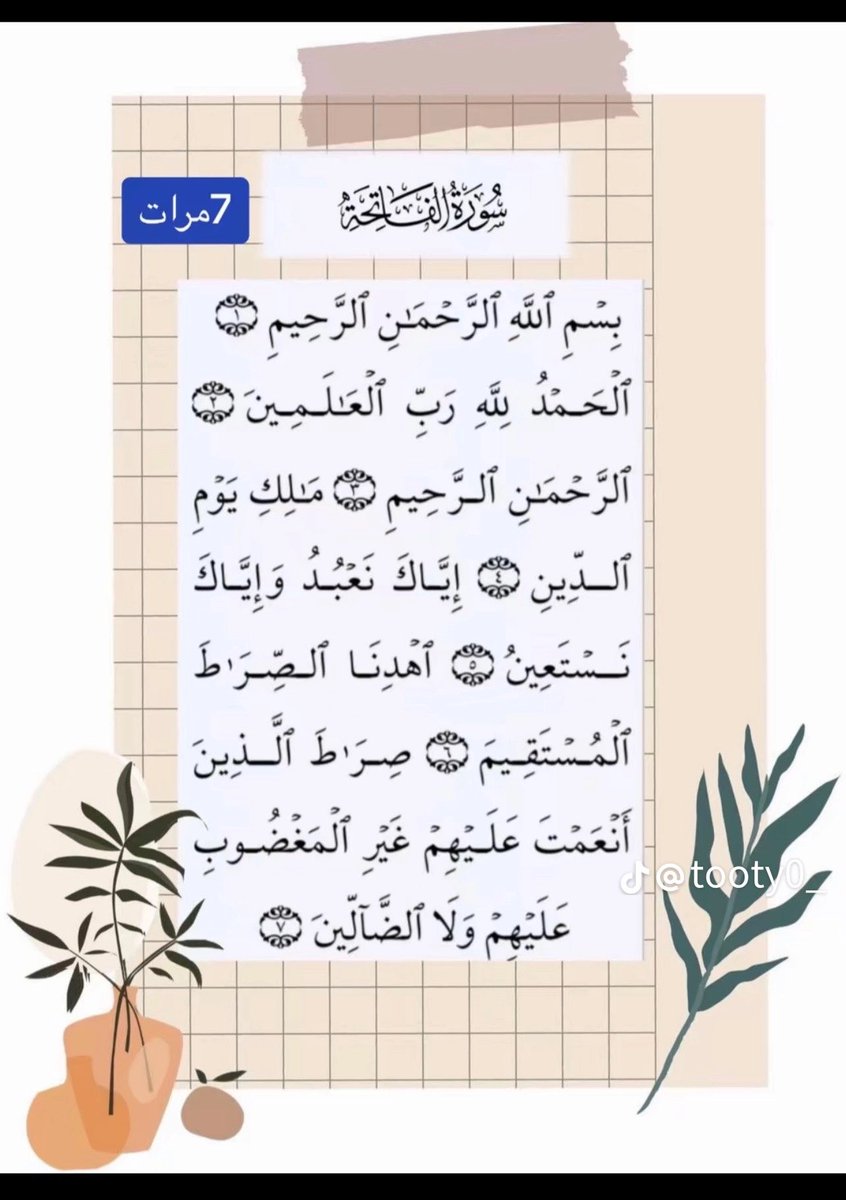 سُورَةُ الفَاتِحَةِ
7مرات
بِسْمِ ٱللَّهِ ٱلرَّحْمَـٰنِ ٱلرَّحِيمِ ١
ٱلْحَمْدُ لِلَّهِ رَبِّ ٱلْعَـٰلَمِينَ ٢
ٱلرَّحْمَـٰنِ ٱلرَّحِيمِ ٣ مَـٰلِكِ يَوْمِ
ٱلدِّينِ ٤ إِيَّاكَ نَعْبُدُ وَإِيَّاكَ
نَسْتَعِينُ ٥ ٱهْدِنَا ٱلصِّرَٰطَ
ٱلْمُسْتَقِيمَ ٦ صِرَٰطَ ٱلَّذِينَ
أَنْعَمْتَ عَلَيْهِمْ غَيْرِ ٱلْمَغْضُوبِ
عَلَيْهِمْ وَلَا ٱلضَّآلِّينَ ٧
@tooty0_